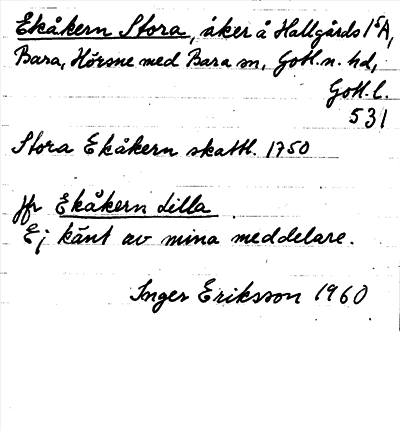 Ekåkern Stora, åker å Hallgårds 1⁵A,
Bara, Hörsne med Bara sn, Gotl. n. hd,
Gotl. l.
531
Stora Ekåkern skattl. 1750
Jfr Ekåkern Lilla
Ej känt av mina meddelare.
Inger Eriksson 1960